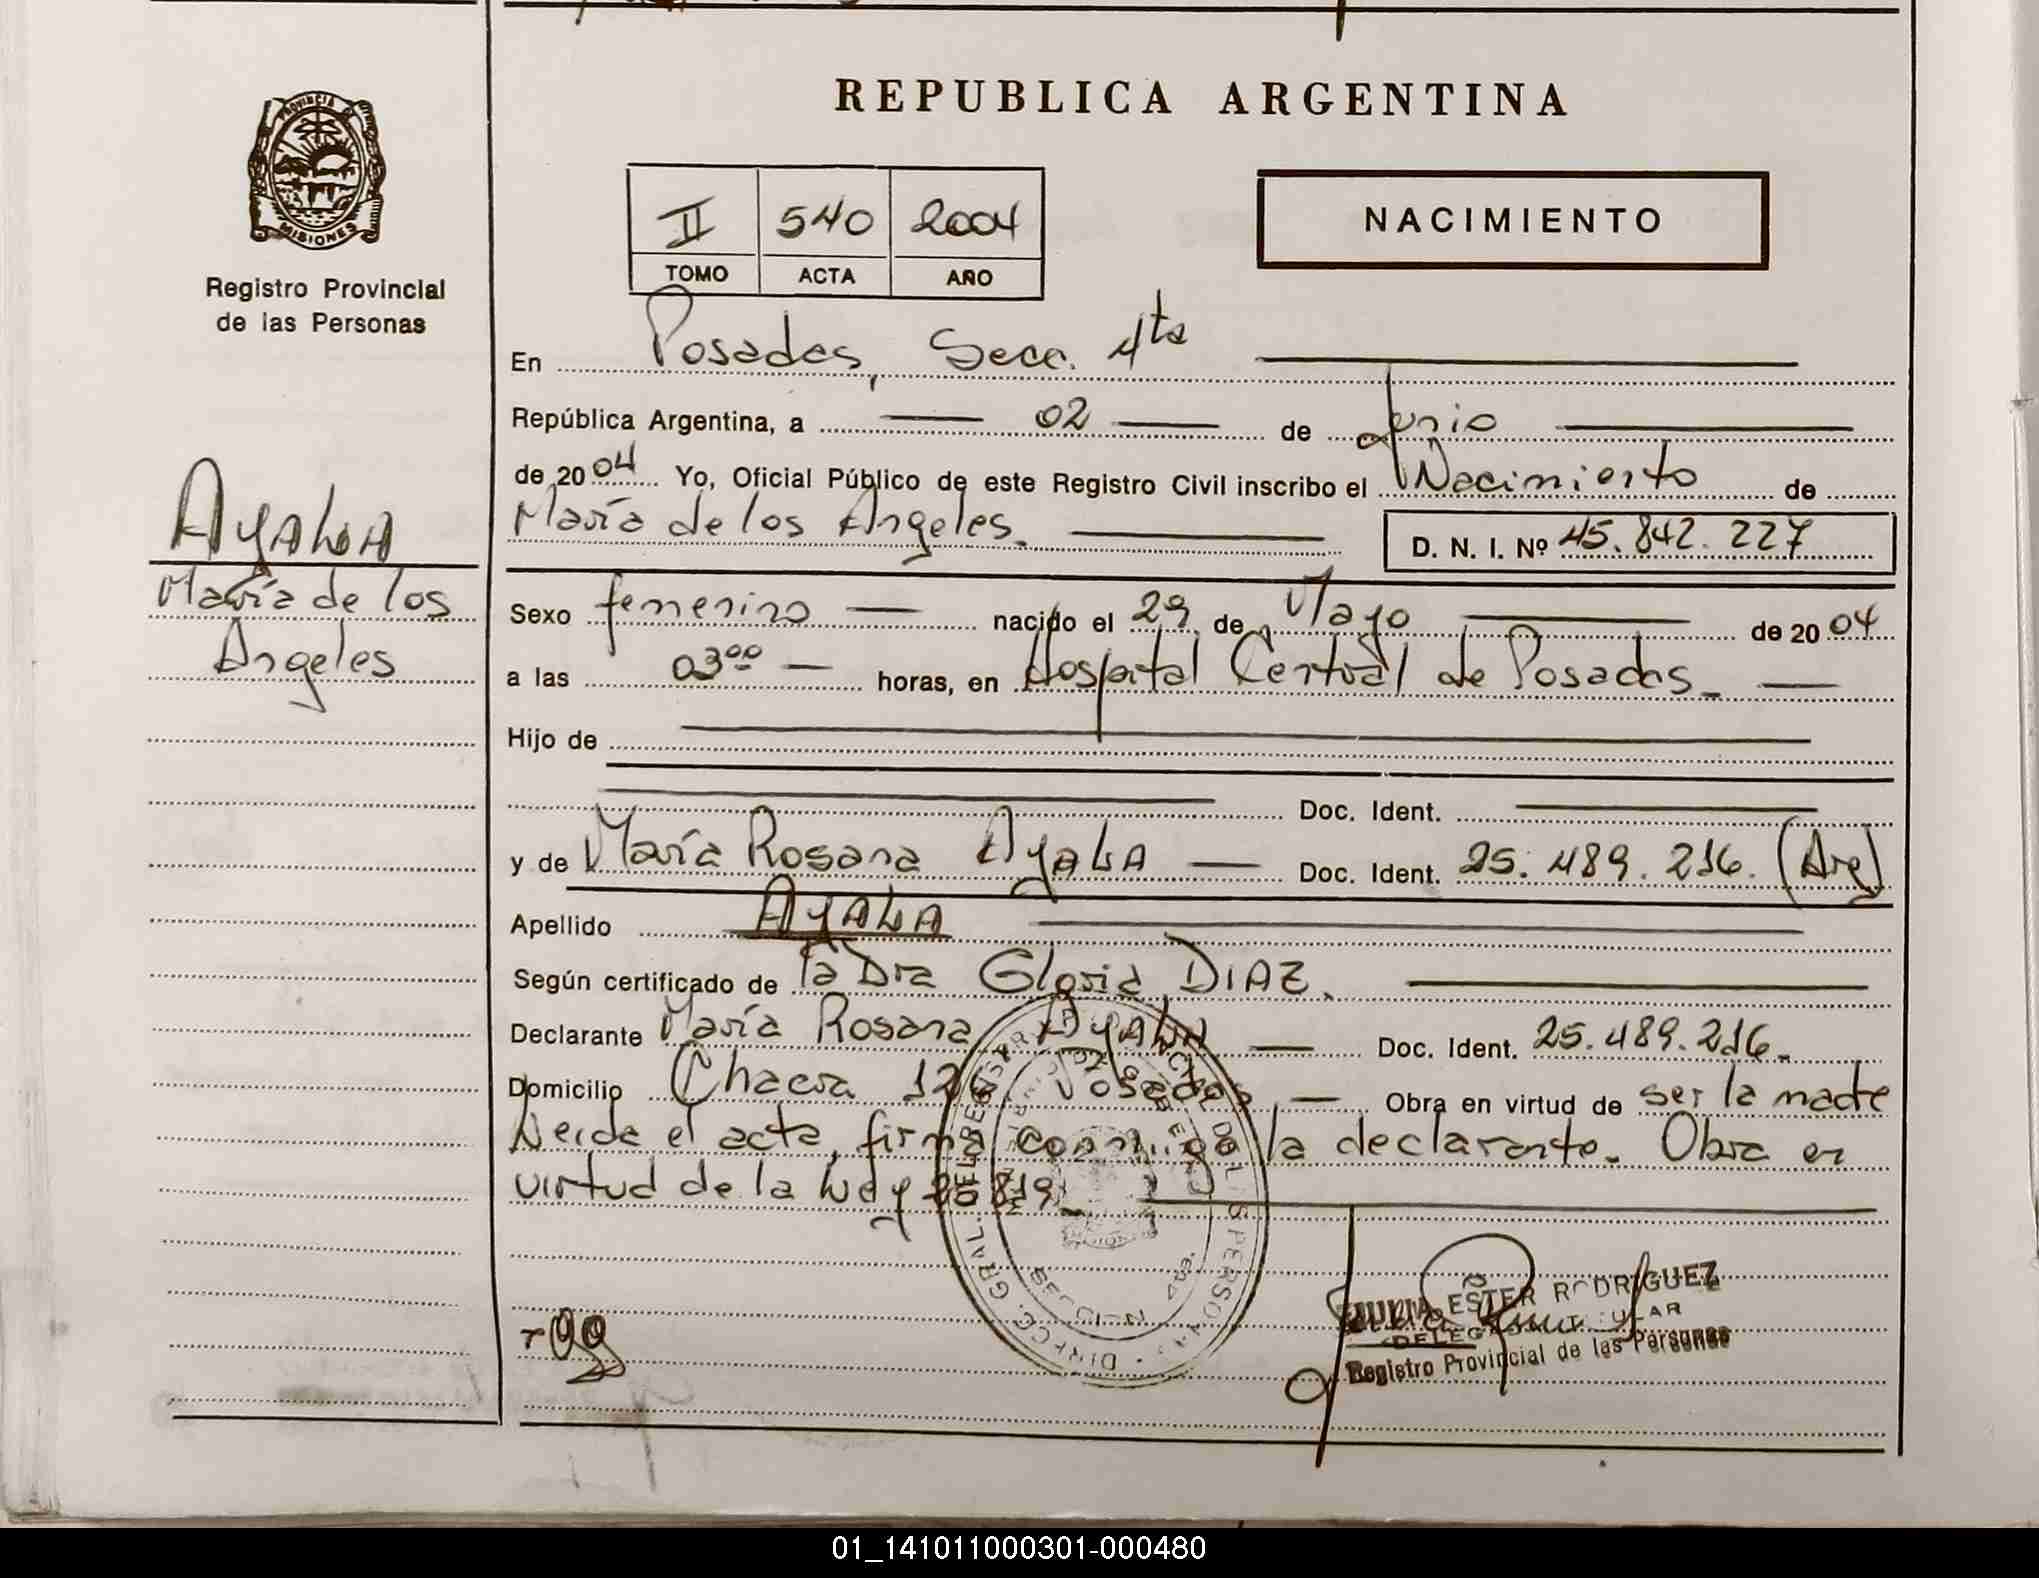 REPUBLICA ARGENTINA
PROVINCIA
MISIONES
Registro Provincial
de las Personas
II 540 2004
TOMO ACTA AÑO
NACIMIENTO
En Posadas, Secc. 4ta
República Argentina, a 02 de Junio
de 2004 Yo, Oficial Público de este Registro Civil inscribo el Nacimiento de
María de los Angeles. D. N. I. Nº 45.842.227
AYALA
María de los
Angeles
Sexo femenino nacido el 29 de Mayo de 2004
a las 0300 horas, en Hospital Central de Posadas
Hijo de
Doc. Ident.
y de María Rosana AyALA Doc. Ident. 25.489.216. (Arg)
Apellido AYALA
Según certificado de la Dra Gloria DIAZ.
Declarante María Rosana AYALA Doc. Ident. 25.489.216.
Domicilio Chacra Posadas Obra en virtud de ser la madre
Leida el acta, firma conmigo la declarante. Obra en
virtud de la Ley
ESTER RODRIGUEZ
Registro Provincial de las Personas
01_141011000301-000480